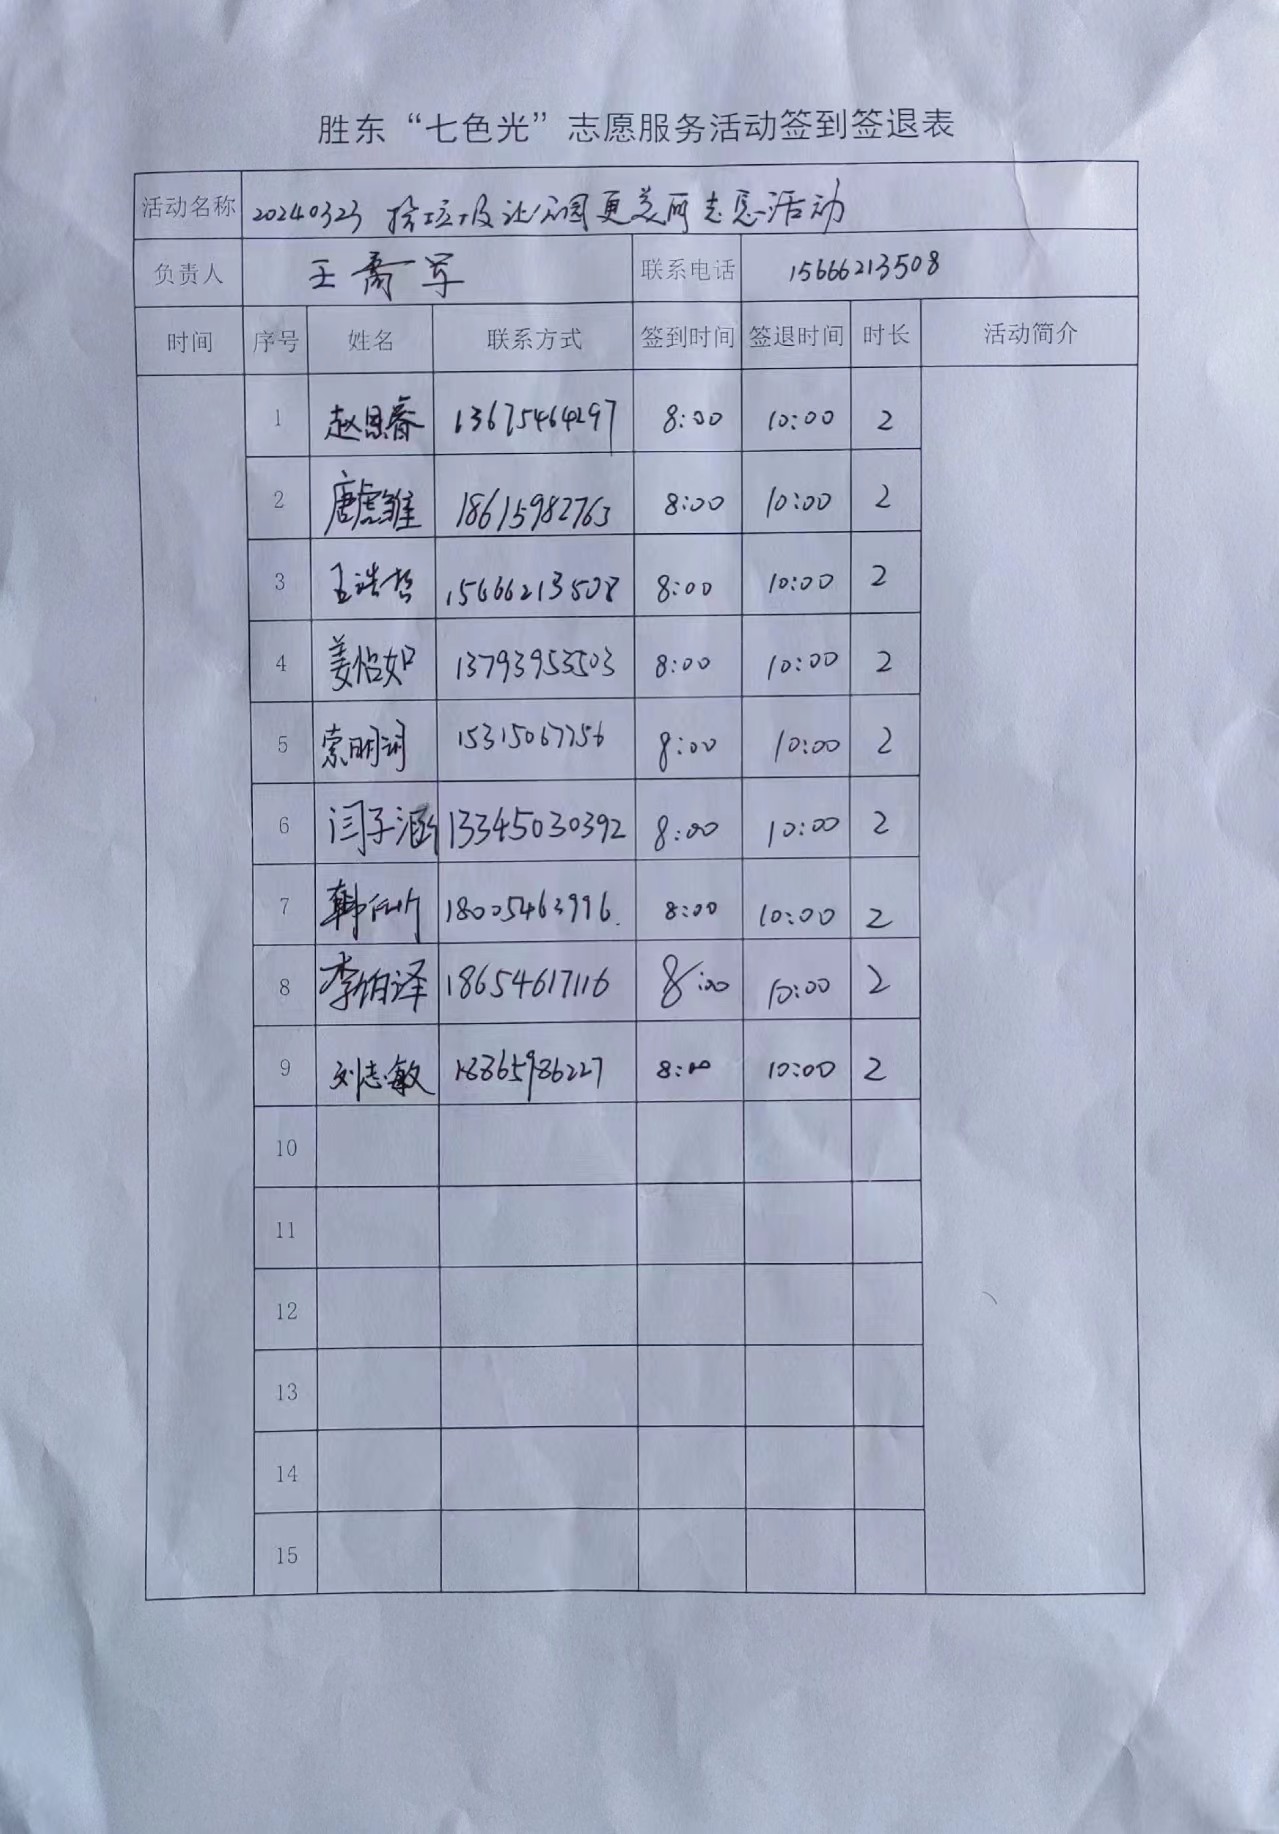 胜东“七色光”志愿服务活动签到签退表
活动名称 20240323 捡垃圾让公园更美丽志愿活动
负责人 王 军 联系电话 15666213508
时间 序号 姓名 联系方式 签到时间 签退时间 时长 活动简介
1 赵思睿 13675464297 8:00 10:00 2
2 唐虎雏 18615982763 8:00 10:00 2
3 王浩哲 15666213508 8:00 10:00 2
4 姜怡如 13793953503 8:00 10:00 2
5 索明润 15315067756 8:00 10:00 2
6 闫子涵 13345030392 8:00 10:00 2
7 韩 18005463996. 8:00 10:00 2
8 李怡译 18654617116 8:00 10:00 2
9 刘志敏 18865986227 8:00 10:00 2
10
11
12
13
14
15